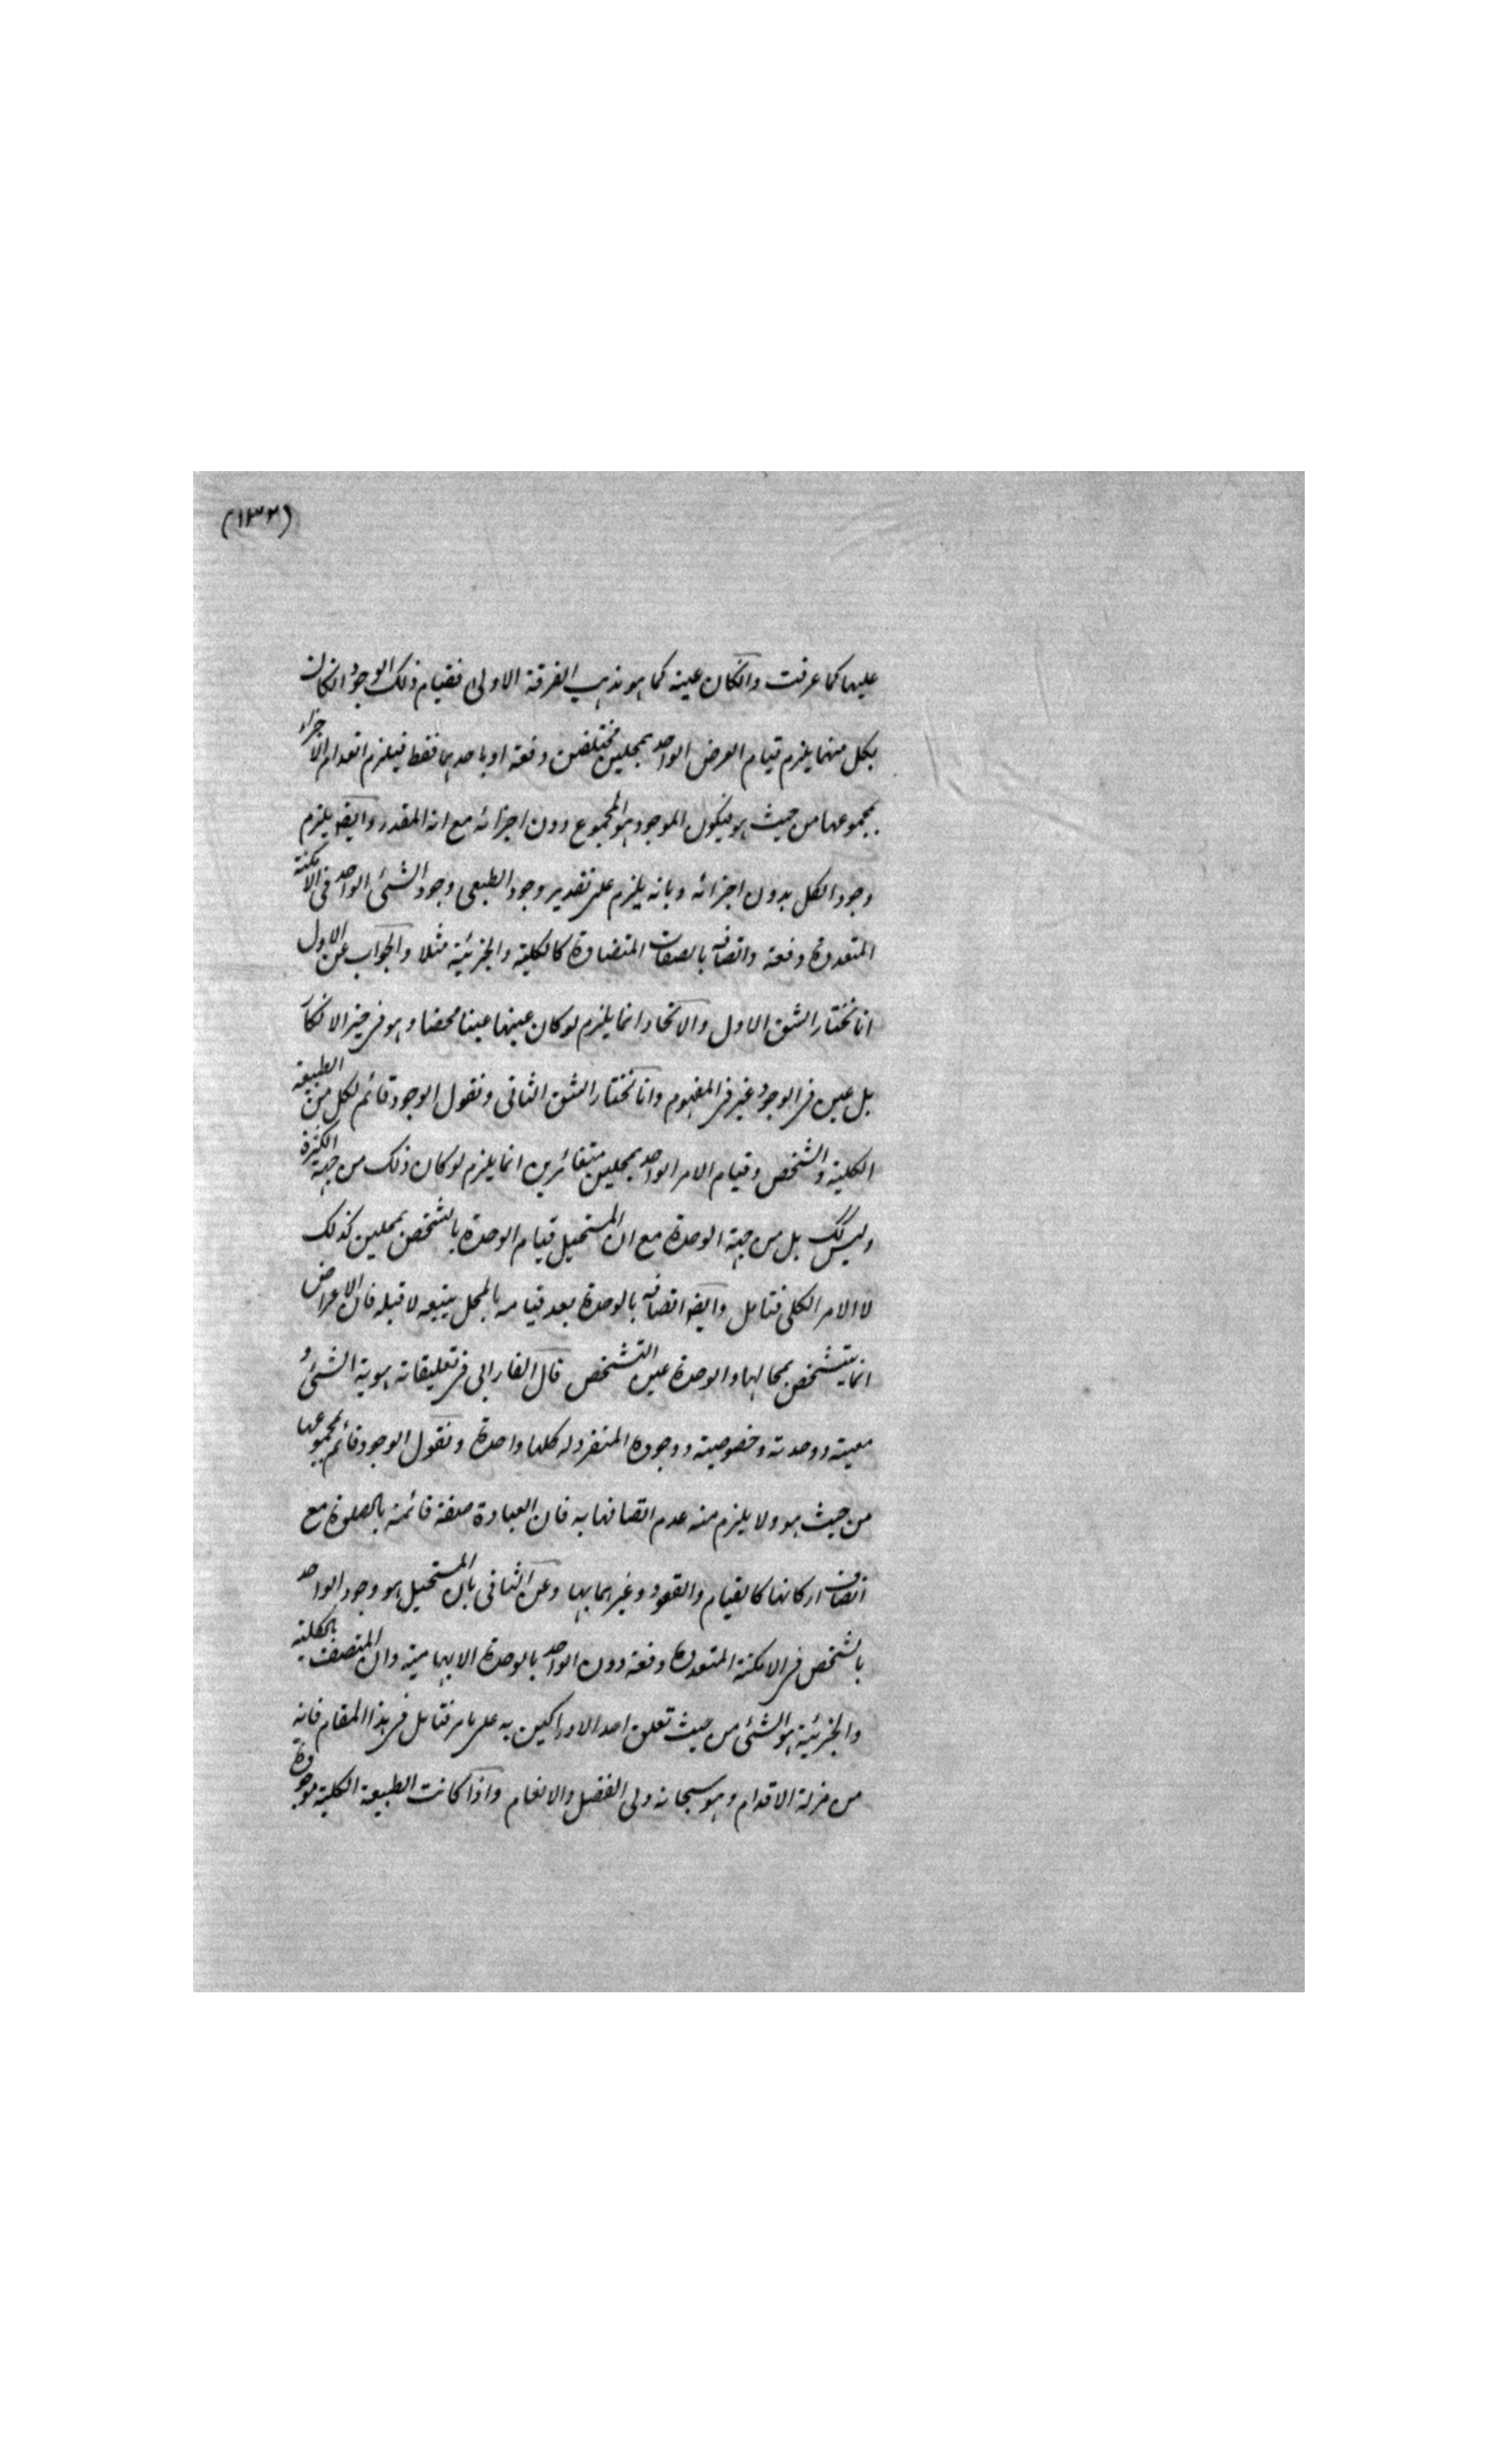 (١٣٢)
عليها كما عرفت وانكان عينه كما هو مذهب الفرقة الاولى فقيام ذلك الوجود انكان
بكل منهما يلزم قيام العرض الواحد بمحلين مختلفين دفعة او باحدهما فقط فيلزم انعدام الاجزاء
بمجموعها من حيث هو فيكون الموجود هو المجموع دون اجزائه مع انه المقدر وايضا يلزم
وجود الكل بدون اجزائه وبانه يلزم على تقدير وجود الطبعى وجود الشئ الواحد فى الامكنة
المتعددة دفعة واتصافه بالصفات المتضادة كالكلية والجزئية مثلا والجواب عن الاول
انا نختار الشق الاول والاتحاد انما يلزم لوكان عينها عينا محضا وهو فى حيز الانكار
بل عين فى الوجود غير فى المفهوم وانا نختار الشق الثانى ونقول الوجود قائم لكل من الطبيعة
الكلية والشخص وقيام الامر الواحد بمحلين متغائرين انما يلزم لوكان ذلك من جهة الكثرة
وليس كك بل من جهة الوحدة مع ان المستحيل قيام الوحدة بالشخص بمحلين كذلك
لا الامر الكلى فتامل وايضا اتصافه بالوحدة بعد قيامه بالمحل يتبعه لا قبله فان الاعراض
انما يتشخص بمحالها والوحدة عين التشخص قال الفارابى فى تعليقاته هوية الشئ و
معيته ووحدته وخصوصيته ووجوده المنفرد له كلها واحدة ونقول الوجود قائم بمجموعها
من حيث هو ولا يلزم منه عدم اتصافها به فان العبادة صفة قائمة بالصلوة مع
اتصاف اركانها كالقيام والقعود وغيرهما بها وعن الثانى بان المستحيل هو وجود الواحد
بالشخص فى الامكنة المتعددة دفعة دون الواحد بالوحدة الابهامية وان المتصف بالكلية
والجزئية هو الشئ من حيث تعلق احد الادراكين به على ما مر فتامل فى هذا المقام فانه
من مزلة الاقدام وهو سبحانه ولى الفضل والانعام واذا كانت الطبيعة الكلية موجودة